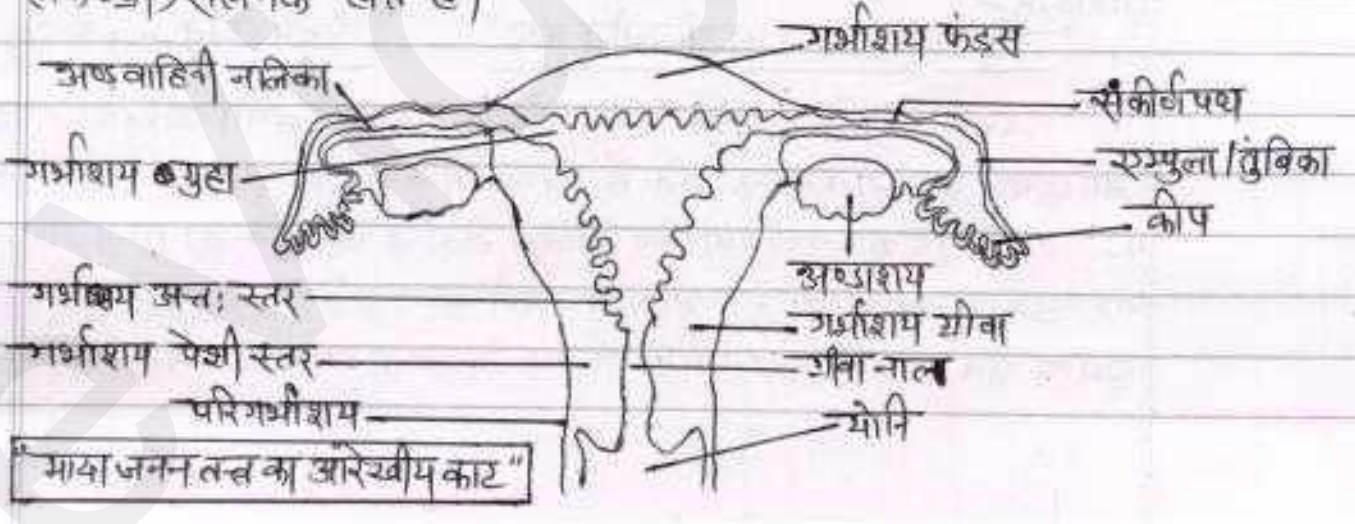 गर्भाशय फंडस
अण्डवाहिनी नलिका
संकीर्ण पथ
गर्भाशय गुहा
एम्पुला/तुंबिका
कीप
अण्डाशय
गर्भाशय अन्तः स्तर
गर्भाशय ग्रीवा
गर्भाशय पेशी स्तर
ग्रीवा नाल
परिगर्भाशय
योनि
"मादा जनन तन्त्र का आरेखीय काट"